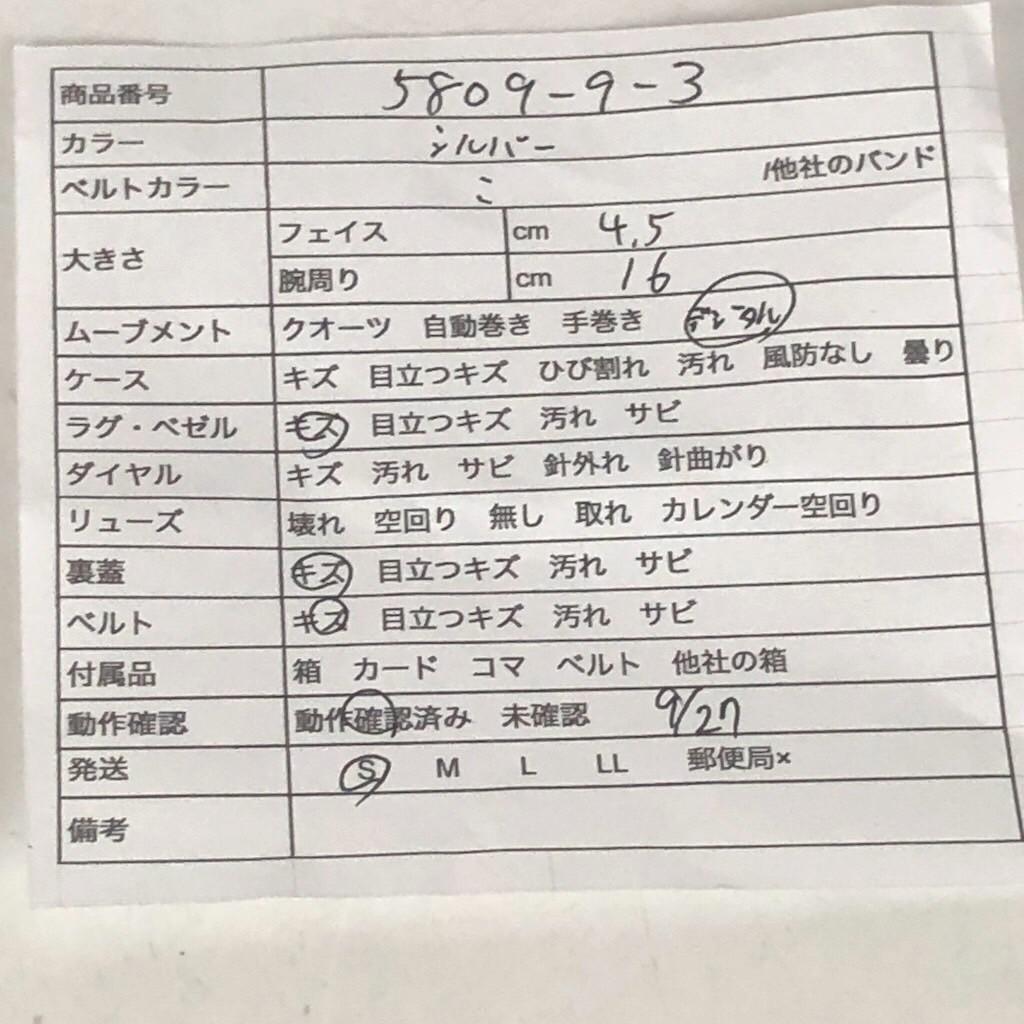 商品番号 5809-9-3
カラー シルバー
ベルトカラー こ /他社のバンド
大きさ フェイス cm 4.5
腕周り cm 16
ムーブメント クオーツ 自動巻き 手巻き デジタル
ケース キズ 目立つキズ ひび割れ 汚れ 風防なし 曇り
ラグ・ベゼル キズ 目立つキズ 汚れ サビ
ダイヤル キズ 汚れ サビ 針外れ 針曲がり
リューズ 壊れ 空回り 無し 取れ カレンダー空回り
裏蓋 キズ 目立つキズ 汚れ サビ
ベルト キズ 目立つキズ 汚れ サビ
付属品 箱 カード コマ ベルト 他社の箱
動作確認 動作確認済み 未確認 9/27
発送 S M L LL 郵便局×
備考